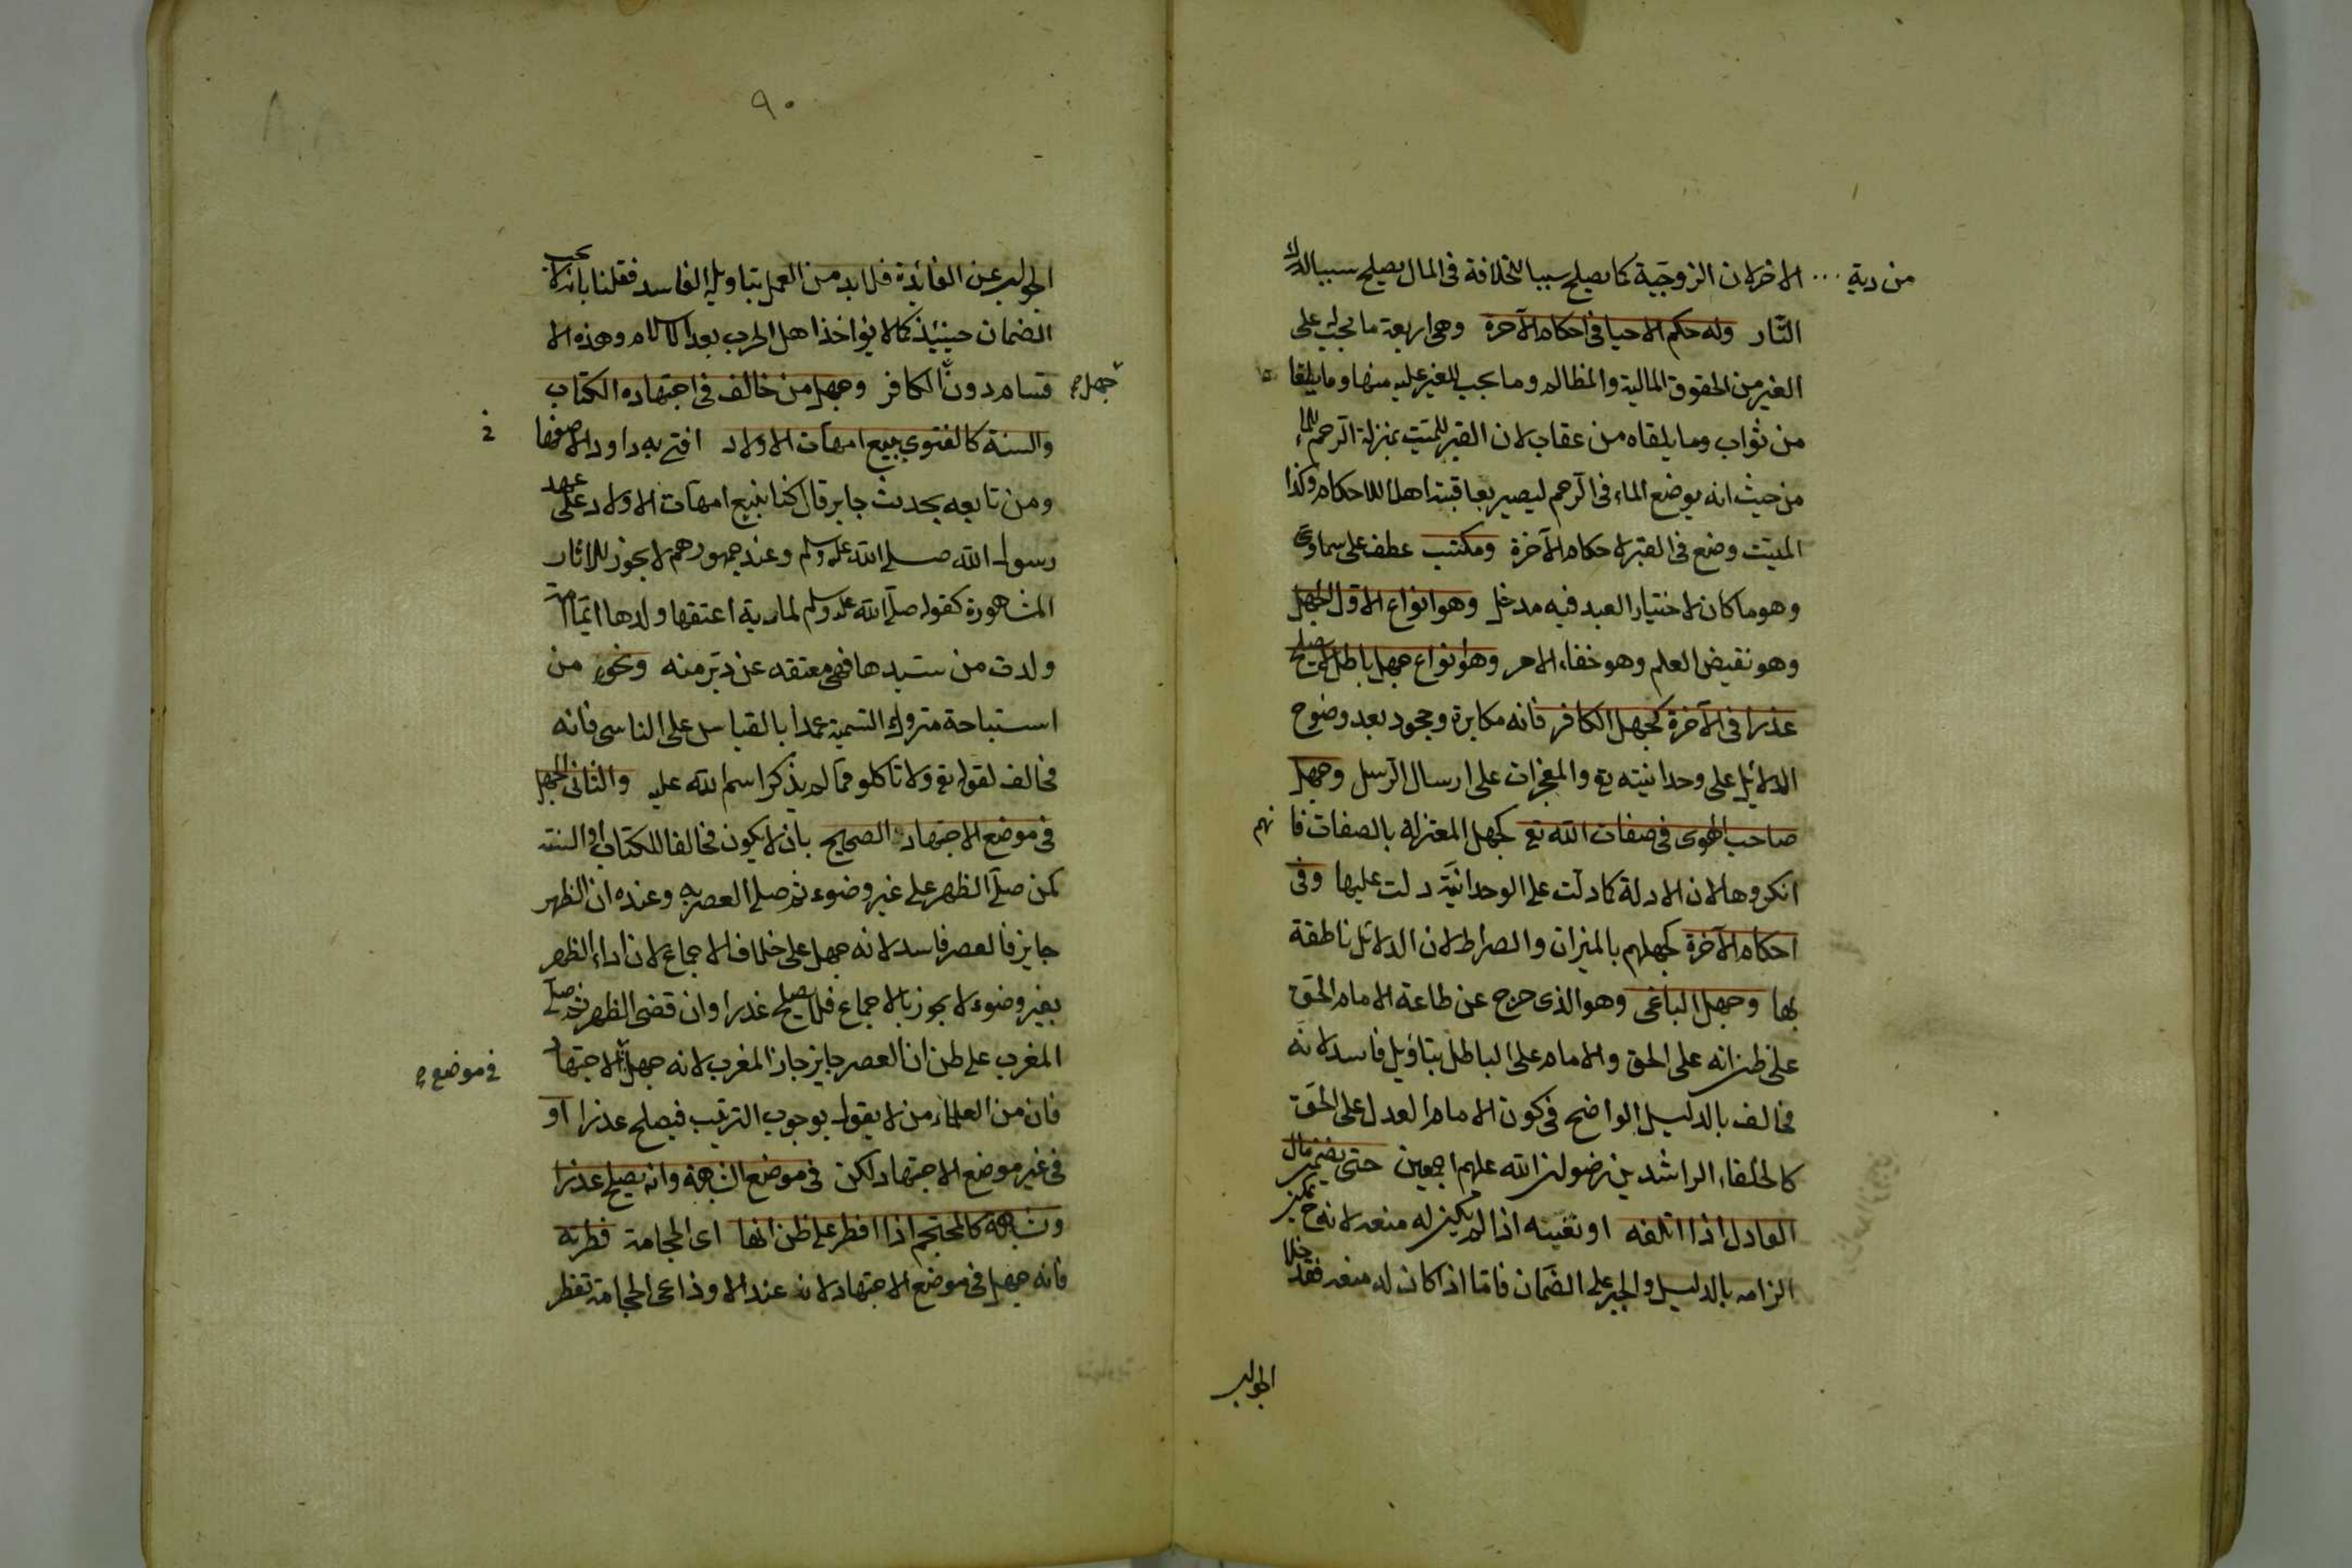 من دية ... الاخر لان الزوجية كما يصلح سببا للخلافة فى المال يصلح سببا لدرك
الثار وله حكم الاحيا فى احكام الآخرة وهى اربعة ما يجب على
الغير من الحقوق المالية والمظالم وما يجب للغير عليه منها وما يلقا
من ثواب وما يلقاه من عقاب لان القبر للميت بمنزلة الرحم للماء
من حيث انه يوضع الماء فى الرحم ليصير بعاقبته اهلا للاحكام وكذا
الميت وضع فى القبر لاحكام الآخرة ومكتسب عطف على سماوى
وهو ما كان لاختيار العبد فيه مدخل وهو انواع الاول الجهل
وهو نقيض العلم وهو خفاء الامر وهو انواع جهل باطل لا يصلح
عذرا فى الآخرة كجهل الكافر فانه مكابرة وجحود بعد وضوح
الدلائل على وحدانيته تع والمعجزات على ارسال الرسل وجهل
صاحب الهوى فى صفات الله تع كجهل المعتزلة بالصفات فا نهم
انكروها لان الادلة كما دلت على الوحدانية دلت عليها وفى
احكام الآخرة كجهلهم بالميزان والصراط لان الدلائل ناطقة
بها وجهل الباغى وهو الذى خرج عن طاعة الامام الحق
على ظن انه على الحق والامام على الباطل بتاويل فاسد لانه
مخالف بالدليل الواضح فى كون الامام العدل على الحق
كالخلفاء الراشدين رضوان الله عليهم اجمعين حتى يضمن مال
العادل اذا اتلفه او نفسه اذا لم يكن له منعة لانه ح يمكن
الزامه بالدليل والجبر على الضمان فاما اذا كان له منعة فقد خلا
الجواب
٩٠
الجواب عن الفائدة فلا بد من العمل بتاويله الفاسد فقلنا بانه لا يجب
الضمان حينئذ كما لا يواخذ اهل الحرب بعد الاسلام وهذه الا
قسام دون الكافر وجهل من خالف فى اجتهاده الكتاب
جهل
والسنة كالفتوى ببيع امهات الاولاد افتى به داود الاصفها نى
ومن تابعه بحديث جابر قال كنا نبيع امهات الاولاد على عهد
رسول الله صلى الله عليه وسلم وعند جمهورهم لا يجوز للاثار
المشهورة كقوله صلى الله عليه وسلم لمارية اعتقها ولدها ايما امة
ولدت من سيدها فهى معتقه عن دبر منه ونحوه من
استباحة متروك التسمية عمدا بالقياس على الناسى فانه
مخالف لقوله تع ولا تاكلو مما لم يذكر اسم الله عليه والثانى الجهل
فى موضع الاجتهاد الصحيح بان لا يكون مخالفا للكتاب او السنة
كمن صلى الظهر على غير وضوء ثم صلى العصر به وعنده ان الظهر
جايز فالعصر فاسد لانه جهل على خلاف الاجماع لان اداء الظهر
بغير وضوء لا يجوز بالاجماع فلا يصلح عذرا وان قضى الظهر ثم صلى
المغرب على ظن ان العصر جايز جاز المغرب لانه جهل الاجتهاد
فى موضع
فان من العلماء من لا يقول بوجوب الترتيب فيصلح عذرا او
فى غير موضع الاجتهاد لكن فى موضع الشبهة وانه يصلح عذرا
وشبهة كالمحتجم اذا افطر على ظن انها اى الحجامة فطرته
فانه جهل فى موضع الاجتهاد لانه عند الاوزاعى الحجامة تفطر